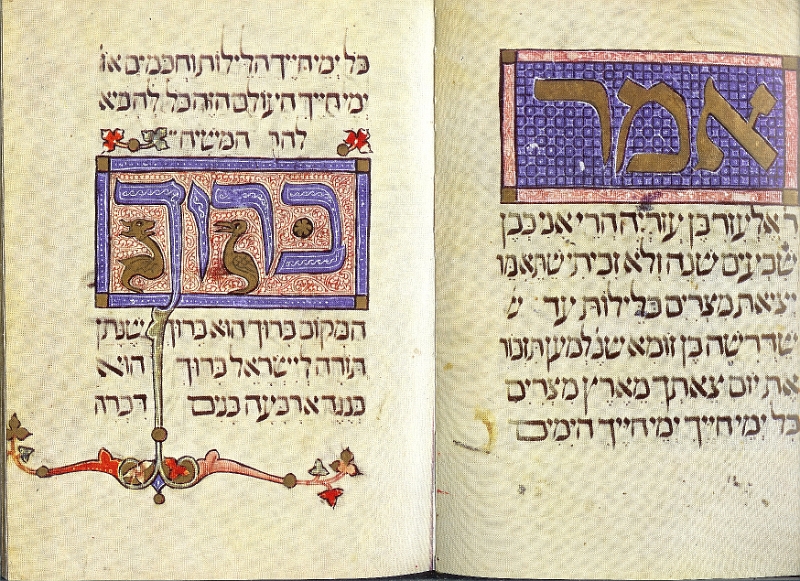 אמר
ר אלעזר בן עזריה הרי אני כבן
שבעים שנה ולא זכיתי שתאמר
יציאת מצרים בלילות עד ש
שדרשה בן זומא שנ למען תזכור
את יום צאתך מארץ מצרים
כל ימי חייך ימי חייך הימים
כל ימי חייך הלילות וחכמים או
ימי חייך העולם הזה הכל להביא
המשיח
ברוך
המקום ברוך הוא ברוך שנתן
תורה לישראל ברוך הוא
כנגד ארבעה בנים דברה